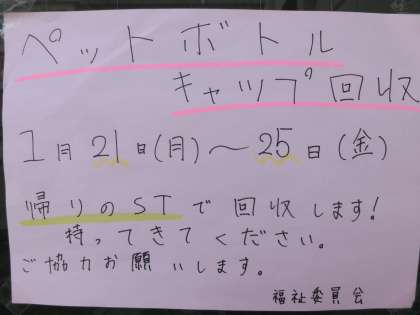 ペットボトル
キャップ回収
1月21日(月)～25日(金)
帰りのSTで回収します!
持ってきてください。
ご協力お願いします。
福祉委員会